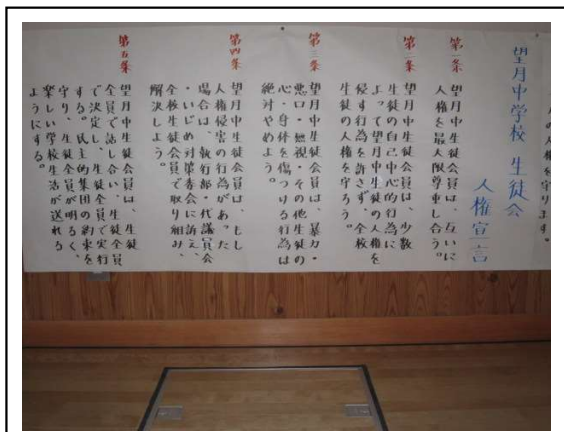 人の人権を守ります。
望月中学校 生徒会
人権宣言
第一条
望月中生徒会員は、互いに
人権を最大限尊重し合う。
第二条
望月中生徒会員は、少数
生徒の自己中心的行為に
よって望月中生徒の人権を
侵す行為を許さず、全校
生徒の人権を守ろう。
第三条
望月中生徒会員は、暴力・
悪口・無視・その他生徒の
心・身体を傷つける行為は
絶対やめよう。
第四条
望月中生徒会員は、もし
人権侵害の行為があった
場合は、執行部・代議員会
・いじめ対策委会に訴え、
全校生徒会員で取り組み、
解決しよう。
第五条
望月中生徒会員は、生徒
全員で話し合い、生徒全員
で決定し、生徒全員で実行
する。民主的集団の約束を
守り、生徒全員が明るく、
楽しい学校生活が送れる
ようにする。